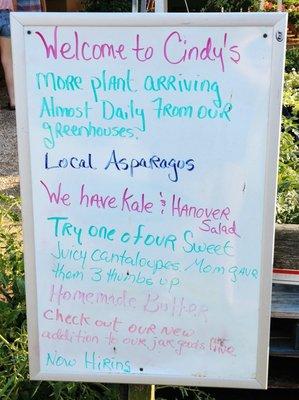 Welcome to Cindy's
more plant arriving
Almost Daily From our
greenhouses.
Local Asparagus
We have Kale & Hanover
Salad
Try one of our Sweet
Juicy cantaloupes Mom gave
them 3 thumbs up
Homemade Butter
Check out our new
addition to our jar goods line
Now Hiring